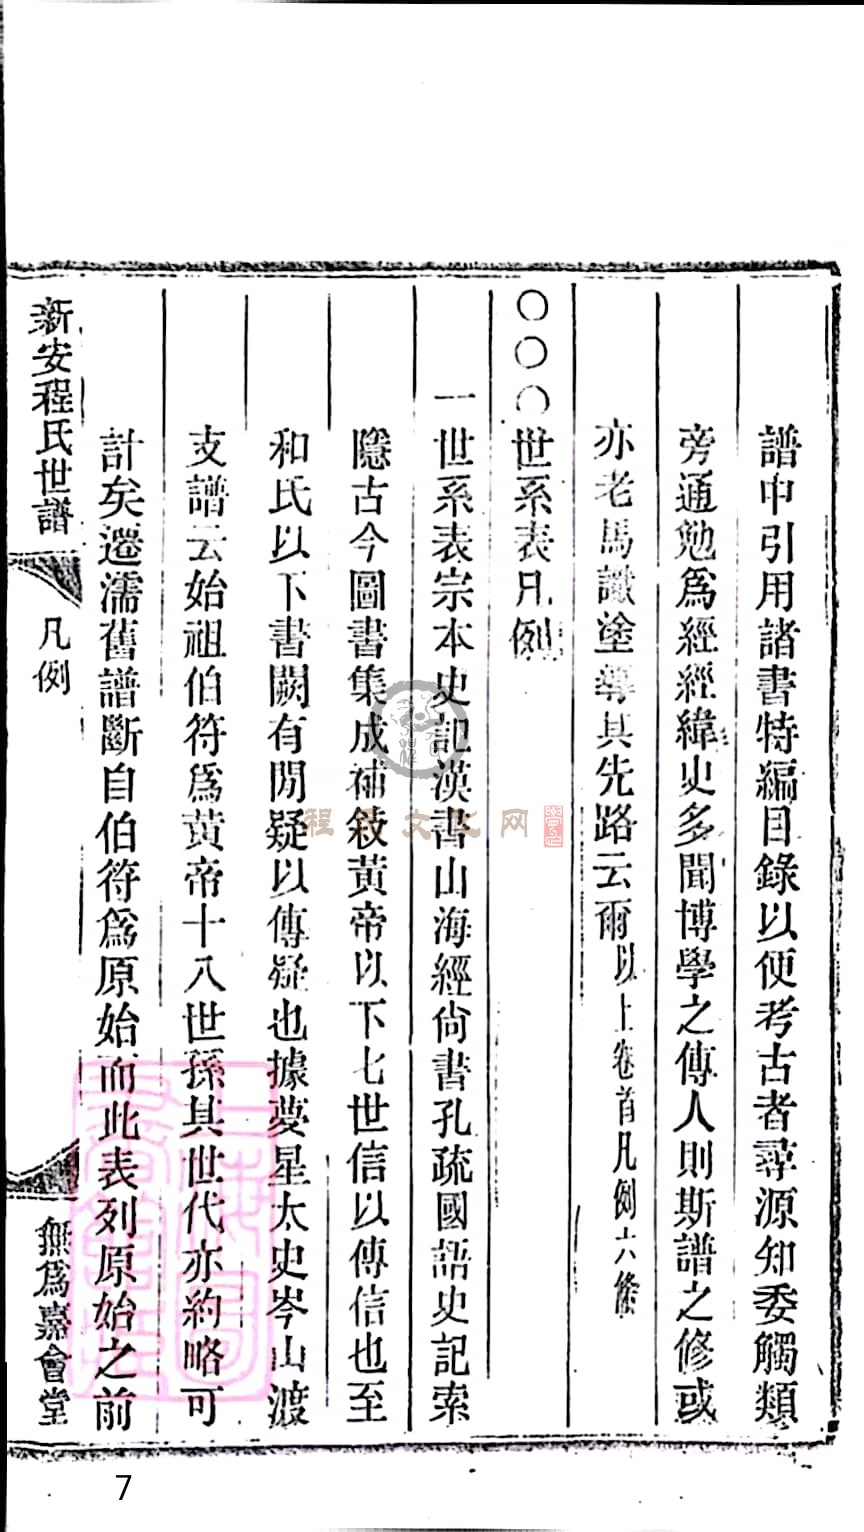 譜中引用諸書特編目錄以便考古者尋源知委觸類
旁通勉爲經經緯史多聞博學之傳人則斯譜之修或
亦老馬識塗導其先路云爾以上卷首凡例六條
〇〇〇世系表凡例
一世系表宗本史記漢書山海經尙書孔疏國語史記索
隱古今圖書集成補敍黃帝以下七世信以傳信也至
和氏以下書闕有閒疑以傳疑也據夢星太史岑山渡
支譜云始祖伯符爲黃帝十八世孫其世代亦約略可
計矣遷濡舊譜斷自伯符爲原始而此表列原始之前
新安程氏世譜
凡例
無爲嘉會堂
程氏文化网
7